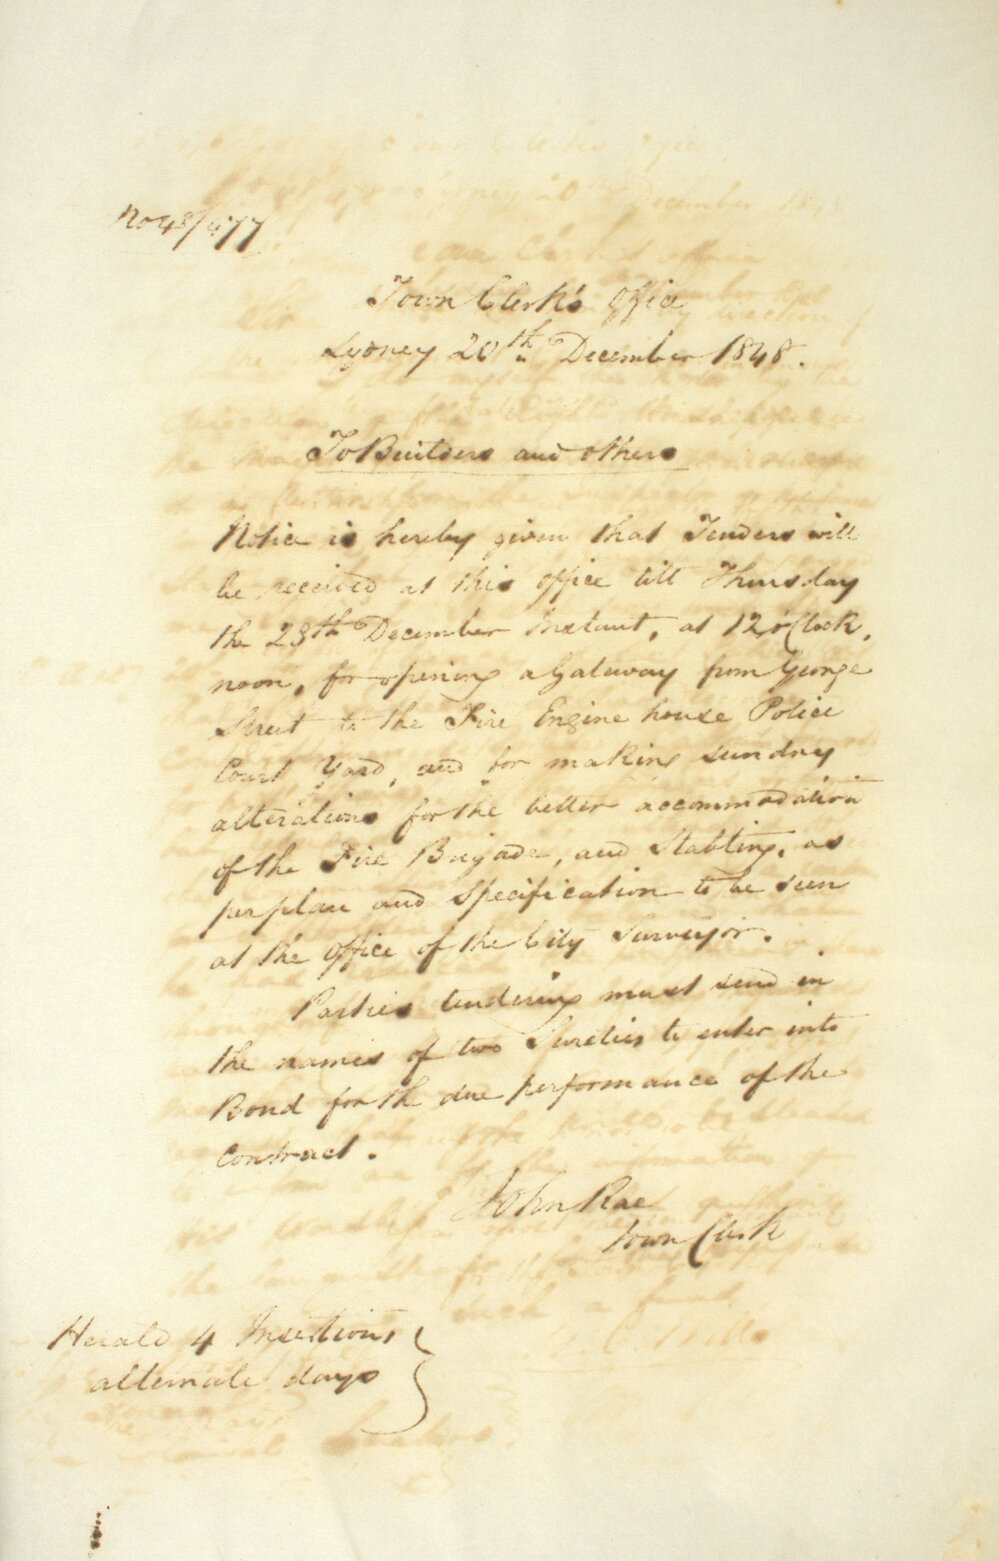 No 48/477
Town Clerk's Office
Sydney 20th December 1848.
To Builders and others
Notice is hereby given that Tenders will
be received at this office till Thursday
the 28th December Instant, at 12 o'Clock,
noon, for opening a Gateway from George
Street to the Fire Engine house Police
Court Yard, and for making sundry
alterations for the better accommodation
of the Fire Brigade, and Stabling, as
per plan and Specification to be seen
at the Office of the City Surveyor.
Parties tendering must send in
the names of two Sureties to enter into
Bond for the due performance of the
Contract.
John Rae
Town Clerk
Herald 4 Insertions
alternate days